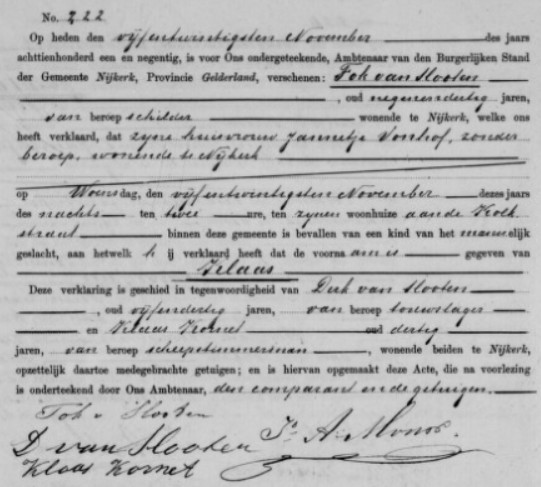 No. 222
Op heden den vijfentwintigsten November des jaars
achttienhonderd een en negentig, is voor Ons ondergeteekende, Ambtenaar van den Burgerlijken Stand
der Gemeente Nijkerk, Provincie Gelderland, verschenen: Toh van Slooten
, oud negenendertig jaren,
van beroep schilder wonende te Nijkerk, welke ons
heeft verklaard, dat zijne huisvrouw Jannetje Vonhof, zonder
beroep, wonende te Nijkerk
op Woensdag, den vijfentwintigsten November dezes jaars
des nachts ten twee ure, ten zijnen woonhuize aan de Kolk
straat binnen deze gemeente is bevallen van een kind van het mannelijk
geslacht, aan hetwelk h ij verklaard heeft dat de voorna am is gegeven van
Klaas
Deze verklaring is geschied in tegenwoordigheid van Dirk van Slooten
, oud vijfendertig jaren, van beroep touwslager
en Klaas Kornet oud dertig
jaren, van beroep scheepstimmerman, wonende beiden te Nijkerk,
opzettelijk daartoe medegebrachte getuigen; en is hiervan opgemaakt deze Acte, die na voorlezing
is onderteekend door Ons Ambtenaar, den comparant en de getuigen.
Toh v Slooten
D van Slooten
Klaas Kornet